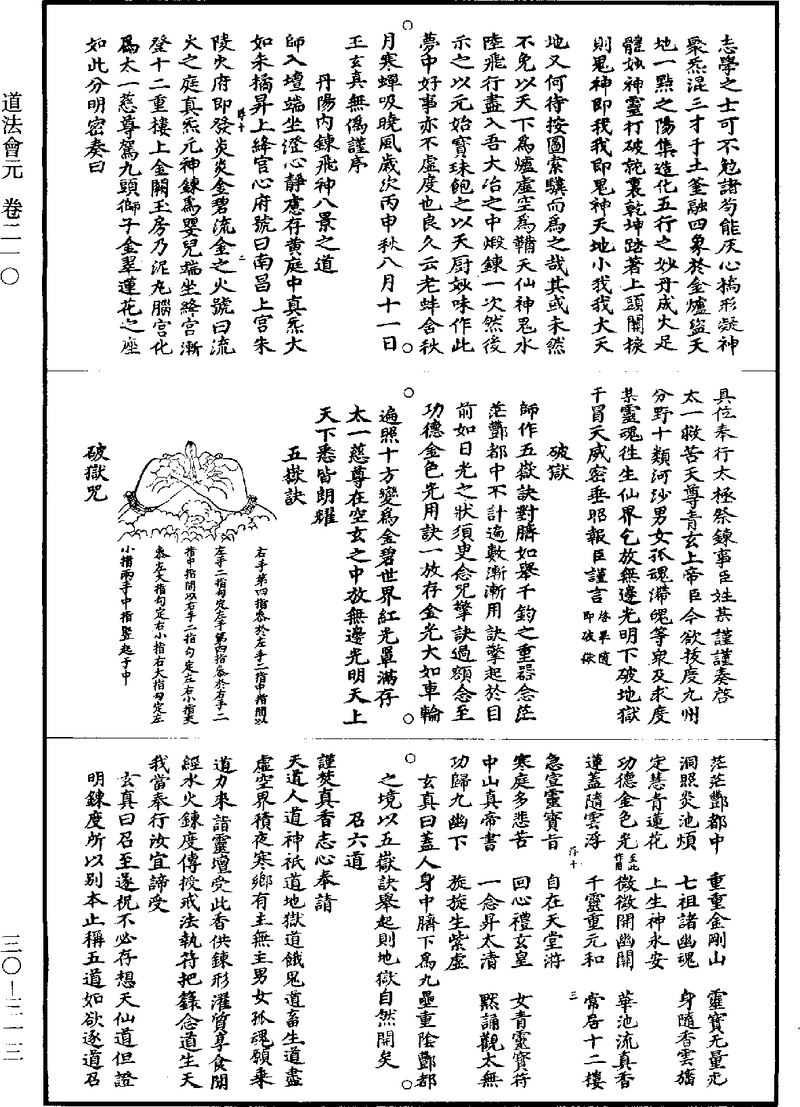 道法會元 卷二一〇
三〇—三二一三
志學之士可不勉諸苟能灰心槁形凝神
聚炁混三才于土釜融四象於金爐盜天
地一點之陽集造化五行之妙丹成火足
體妙神靈打破裏乾坤踏著上頭關捩
則鬼神即我我即鬼神天地小我我大天
地又何待按圖索驥而為之哉其或未然
不免以天下為爐虛空為鞴天仙神鬼水
陸飛行盡入吾大冶之中煅鍊一次然後
示之以元始寶珠飽之以天厨妙味作此
夢中好事亦不虛度也良久云老蚌含秋
月寒蟬吸曉風歲次丙申秋八月十一日
王玄真無偽謹序
丹陽內鍊飛神八景之道
師入壇端坐澄心靜慮存黃庭中真炁大
如朱橘昇上絳宮心府號曰南昌上宮朱
陵火府即發炎炎金碧流金之火號曰流
火之庭真炁元神鍊為嬰兒端坐絳宮漸
登十二重樓上金闕玉房乃泥丸腦宮化
為太一慈尊駕九頭獅子金翠蓮花之座
如此分明密奏曰
具位奉行太極祭鍊事臣姓某謹謹奏啓
太一救苦天尊青玄上帝臣今欲拔度九州
分野十類河沙男女孤魂滯魄等衆及求度
某靈魂往生仙界乞放無邊光明下破地獄
干冒天威密垂昭報臣謹言啓畢隨即破獄
破獄
師作五嶽訣對臍如舉千鈞之重器念茫
茫酆都中不計遍數漸漸用訣擎起於目
前如日光之狀須臾念咒擎訣過額念至
功德金色光用訣一放存金光大如車輪
遍照十方變為金碧世界紅光罩滿存
太一慈尊在空玄之中放無邊光明天上
天下悉皆朗耀
五嶽訣
右手第四指叅於左手二指中指間以
左手二指勾定左手第四指叅於右手二
指中指間以右手二指勾定左右小指夫
叅左大指勾定右小指右大指勾定左
小指兩手中指豎起子中
破獄咒
茫茫酆都中 重重金剛山 靈寶无量光
洞照炎池煩 七祖諸幽魂 身隨香雲旛
定慧青蓮花 上生神永安
功德金色光至此作用 微微開幽關 華池流真香
蓮蓋隨雲浮 千靈重元和 常居十二樓
急宣靈寶旨 自在天堂遊
寒庭多悲苦 回心禮玄皇 女青靈寶符
中山真帝書 一念昇太清 默誦觀太無
功歸九幽下 旋旋生紫虛
玄真曰蓋人身中臍下為九壘重陰酆都
之境以五嶽訣舉起則地獄自然開矣
召六道
謹焚真香志心奉請
天道人道神祇道地獄道餓鬼道畜生道盡
虛空界積夜寒鄉有主無主男女孤魂願乘
道力來詣靈壇受此香供鍊形濯質享食聞
經水火鍊度傳授戒法執符把籙念道生天
我當奉行汝宜諦受
玄真曰召至遂祝不必存想天仙道但證
明鍊度所以别本止稱五道如欲逐道召